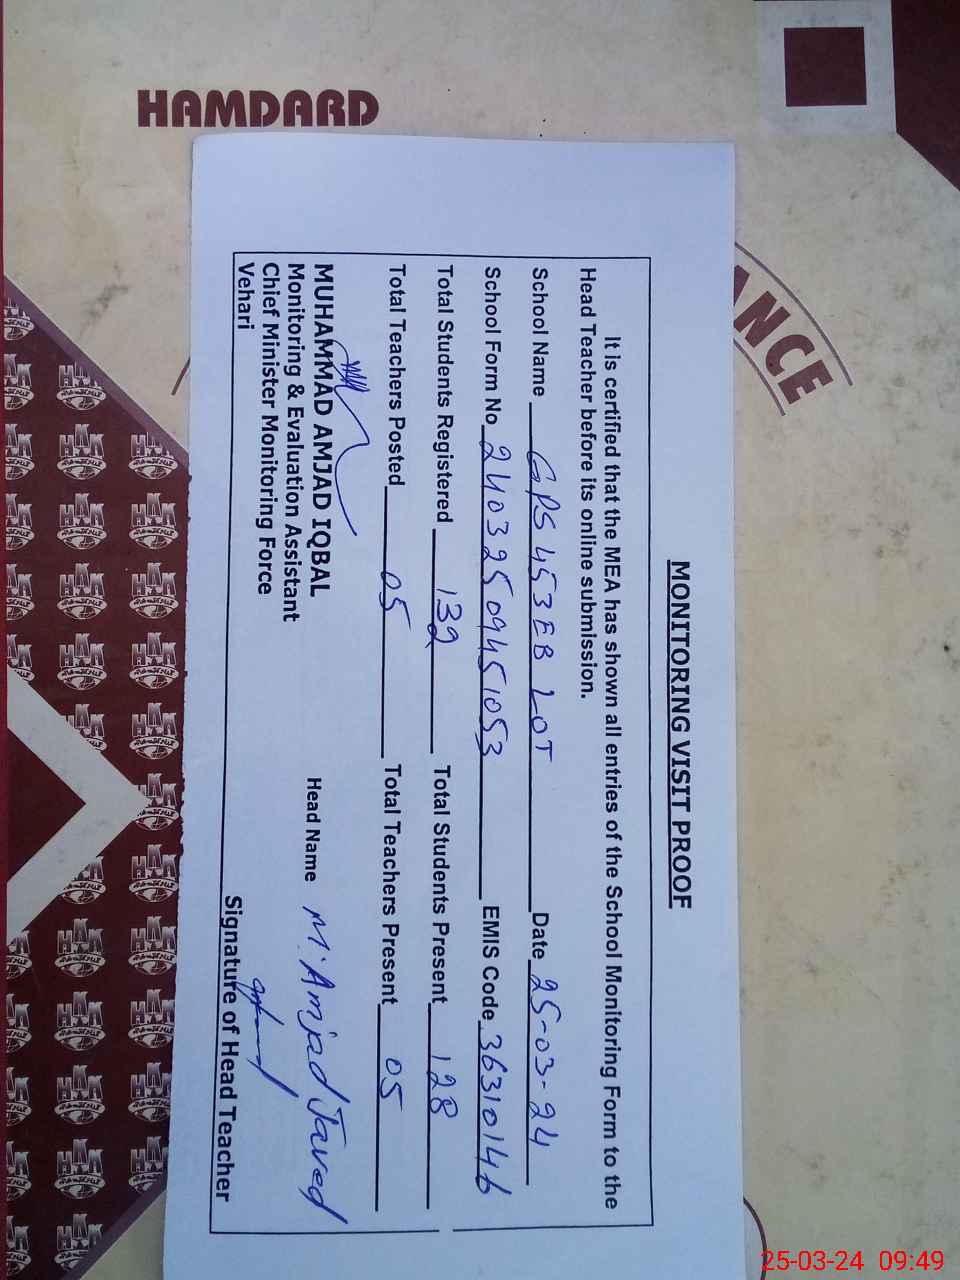 HAMDARD
ANCE
MONITORING VISIT PROOF
It is certified that the MEA has shown all entries of the School Monitoring Form to the
Head Teacher before its online submission.
School Name GPS 453 EB LOT Date 25-03-24
School Form No 24032509451053 EMIS Code 36310146
Total Students Registered 132 Total Students Present 128
Total Teachers Posted 05 Total Teachers Present 05
Head Name M. Amjad Javed
MUHAMMAD AMJAD IQBAL
Monitoring & Evaluation Assistant
Chief Minister Monitoring Force
Vehari
Signature of Head Teacher
25-03-24 09:49